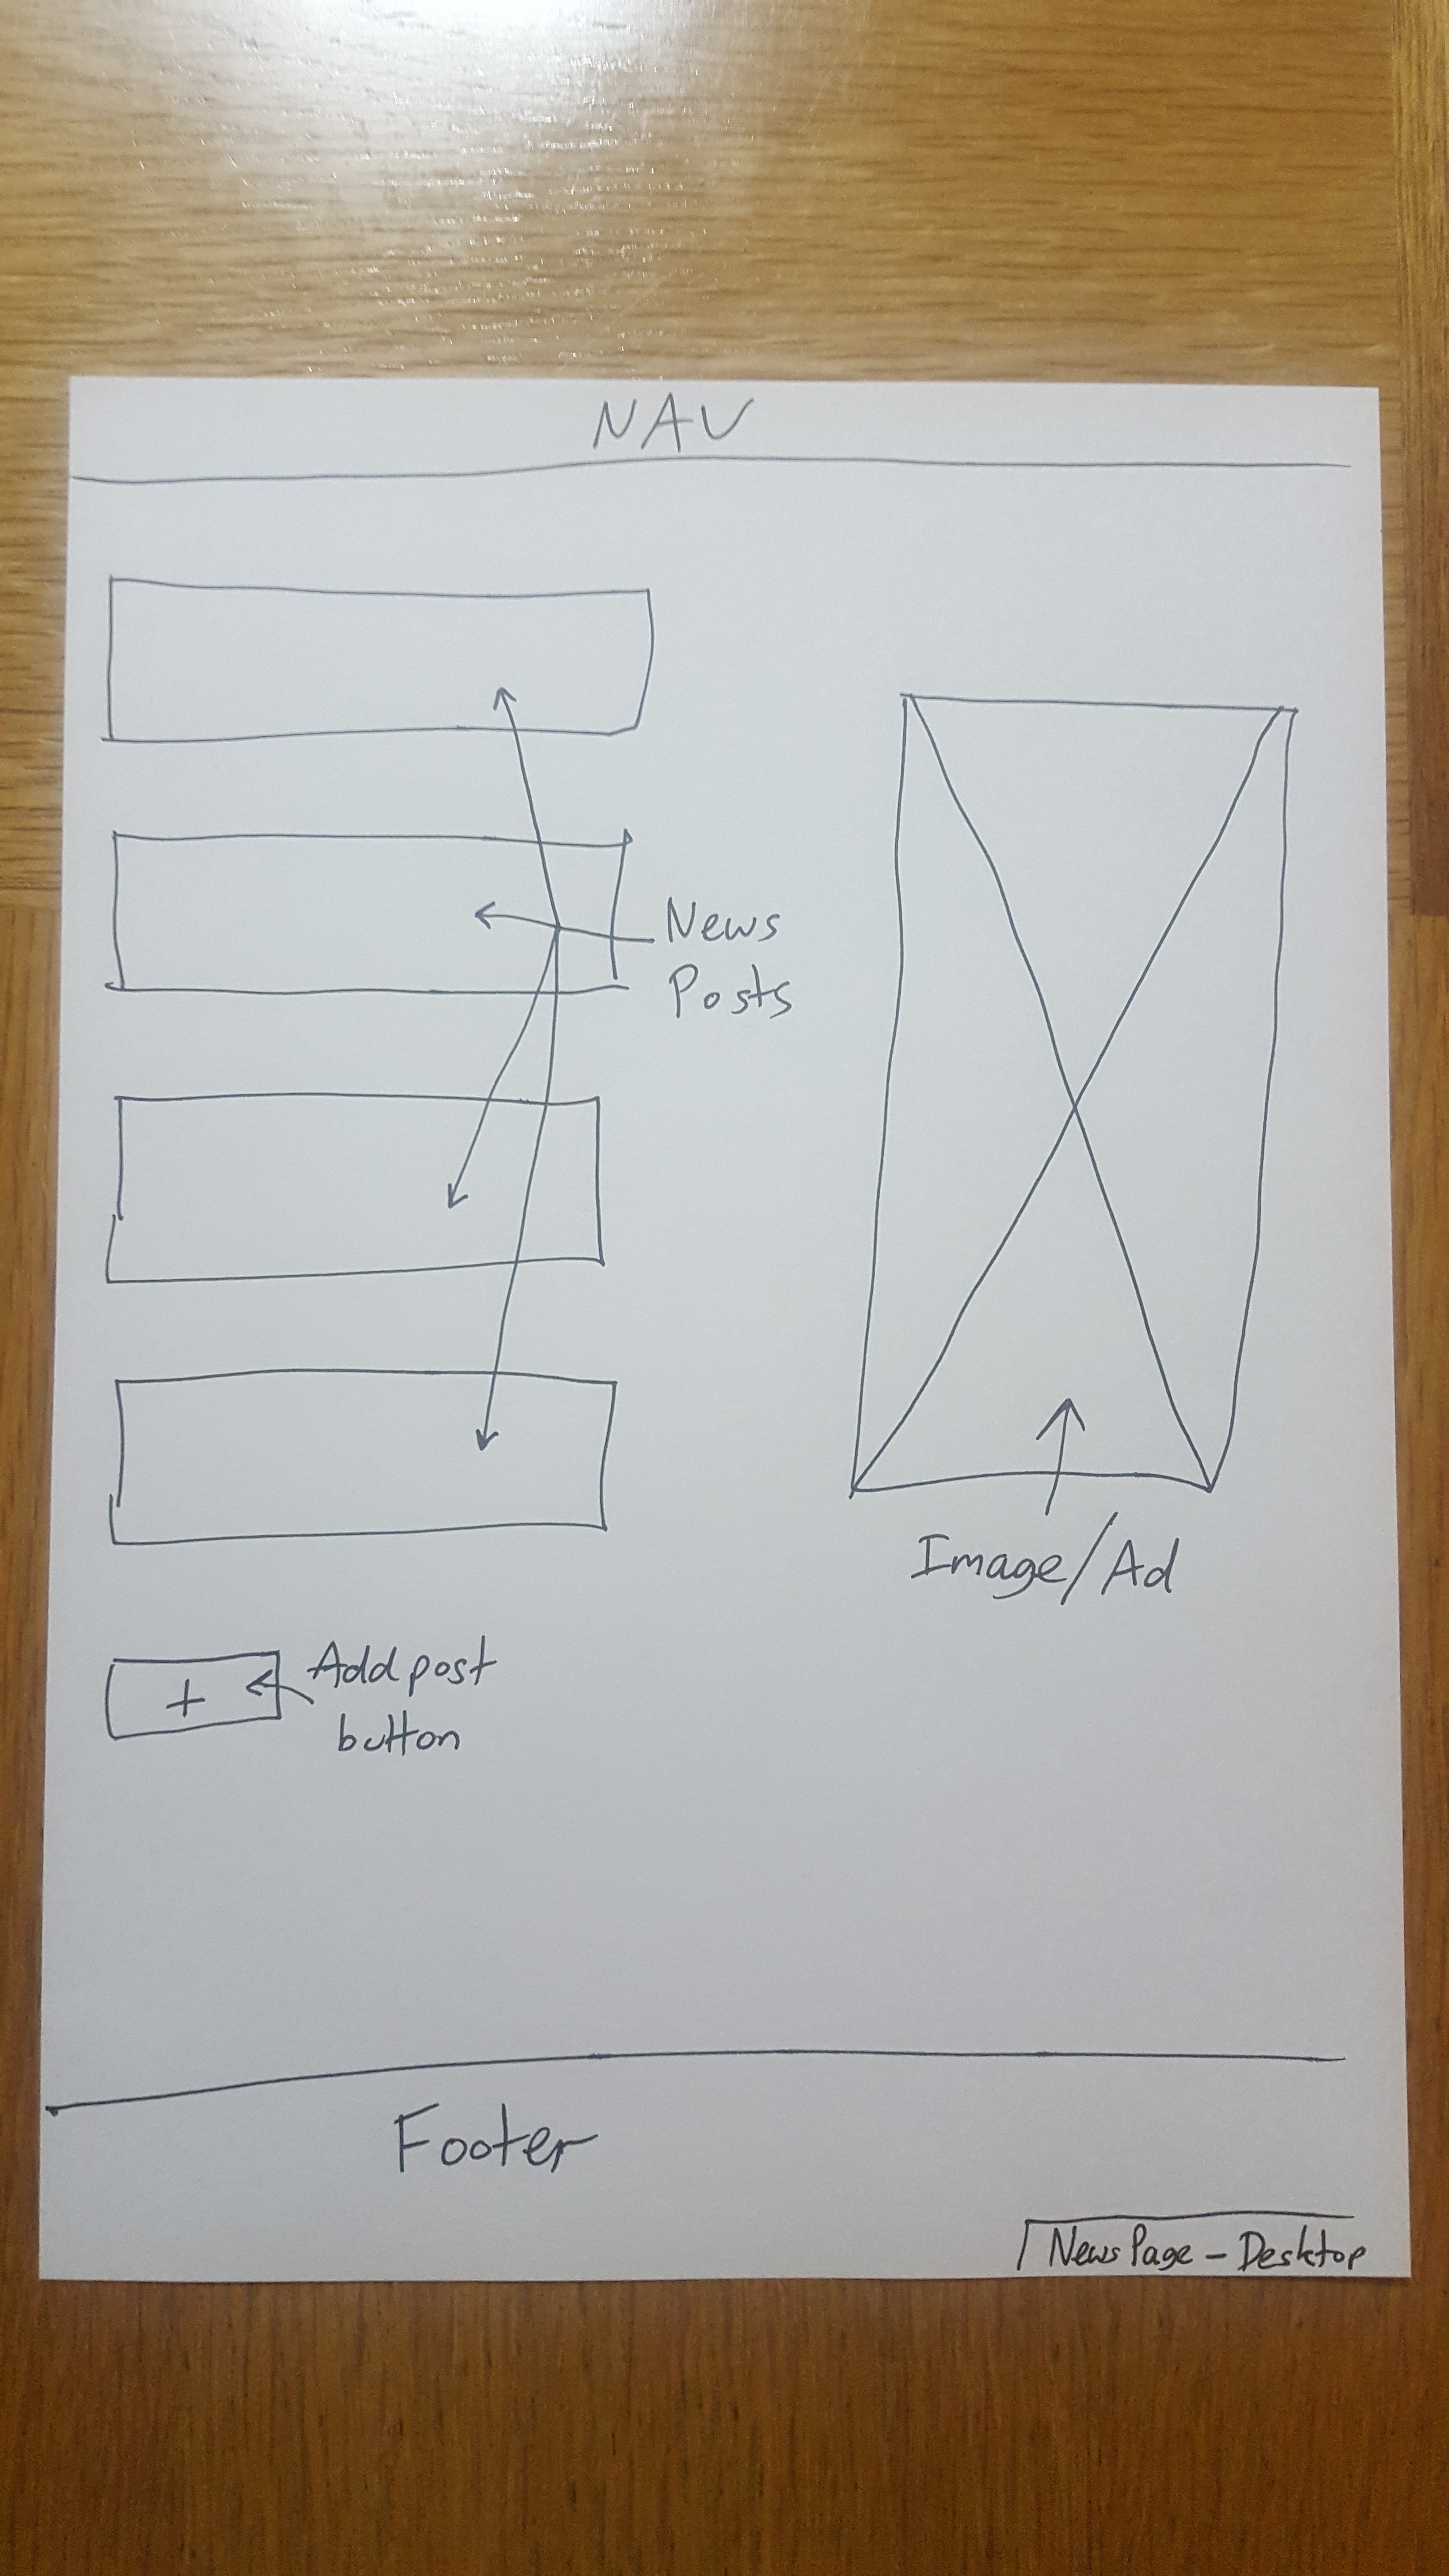 NAV
News
Posts
Image/Ad
+
Add post
button
Footer
News Page - Desktop